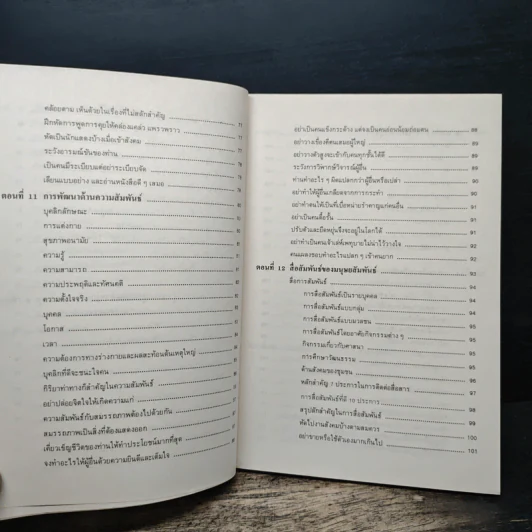 คล้อยตาม เห็นด้วยในเรื่องที่ไม่สลักสำคัญ
ฝึกหัดการพูดการคุยให้คล่องแคล่ว แพรวพราว 77
หัดเป็นนักแสดงบ้างเมื่อเข้าสังคม 77
ระวังอารมณ์ขันของท่าน
เป็นคนมีระเบียบแต่อย่าระเบียบจัด
เลียนแบบอย่าง และอ่านหนังสือดี ๆ เสมอ
ตอนที่ 11 การพัฒนาด้านความสัมพันธ์
บุคลิกลักษณะ
การแต่งกาย
สุขภาพอนามัย
ความรู้
ความสามารถ
ความประพฤติและทัศนคติ
ความตั้งใจจริง
บุคคล
โอกาส
เวลา
ความต้องการทางร่างกายและผลสะท้อนต้นเหตุใหญ่
บุคลิกที่ดีจะชนะใจคน
กิริยาท่าทางก็สำคัญในความสัมพันธ์
อย่าปล่อยจิตใจให้เกิดความแก่
ความสัมพันธ์กับสมรรถภาพต้องไปด้วยกัน
สมรรถภาพเป็นสิ่งที่ต้องแสดงออก
เคี่ยวเข็ญชีวิตของท่านให้ทำประโยชน์มากที่สุด
จงทำอะไรให้ผู้อื่นด้วยความยินดีและเต็มใจ
อย่าเป็นคนแข็งกระด้าง แต่จงเป็นคนอ่อนน้อมถ่อมตน 88
อย่าวางเขื่องทีตนเสมอผู้ใหญ่ 89
อย่าวางตัวสูงจะเข้ากับคนทุกชั้นได้ดี 89
ระวังการวิพากษ์วิจารณ์ผู้อื่น
ท่านทำอะไร ๆ ผิดแปลกกว่าผู้อื่นหรือเปล่า
อย่าทำให้ผู้อื่นเกลียดจากการกระทำ
อย่าทำตนให้เป็นที่เบื่อหน่ายรำคาญแก่คนอื่น
อย่าเป็นคนดื้อรั้น
ปรับตัวและยืดหยุ่นจึงจะอยู่ในโลกได้
อย่าทำเป็นคนเจ้าเล่ห์เพทุบายไม่น่าไว้วางใจ
คนแผลงชอบทำอะไรแปลก ๆ เข้าคนยาก 93
ตอนที่ 12 สื่อสัมพันธ์ของมนุษยสัมพันธ์ 93
สื่อการสัมพันธ์ 94
การสื่อสัมพันธ์เป็นรายบุคคล 94
การสื่อสัมพันธ์แบบกลุ่ม 94
การสื่อสัมพันธ์แบบมวลชน 94
การสื่อสัมพันธ์โดยอาศัยกิจกรรมต่าง ๆ 95
กิจกรรมเกี่ยวกับศาสนา 95
การศึกษาวัฒนธรรม 95
ด้านสังคมของชุมชน 96
หลักสำคัญ 7 ประการในการติดต่อสื่อสาร 96
การสื่อสัมพันธ์ที่ดี 10 ประการ 97
สรุปลักสำคัญในการสื่อสัมพันธ์ 98
หัดไปงานสังคมบ้างตามสมควร 99
อย่าขายหรือใช้ตัวเองมากเกินไป 101